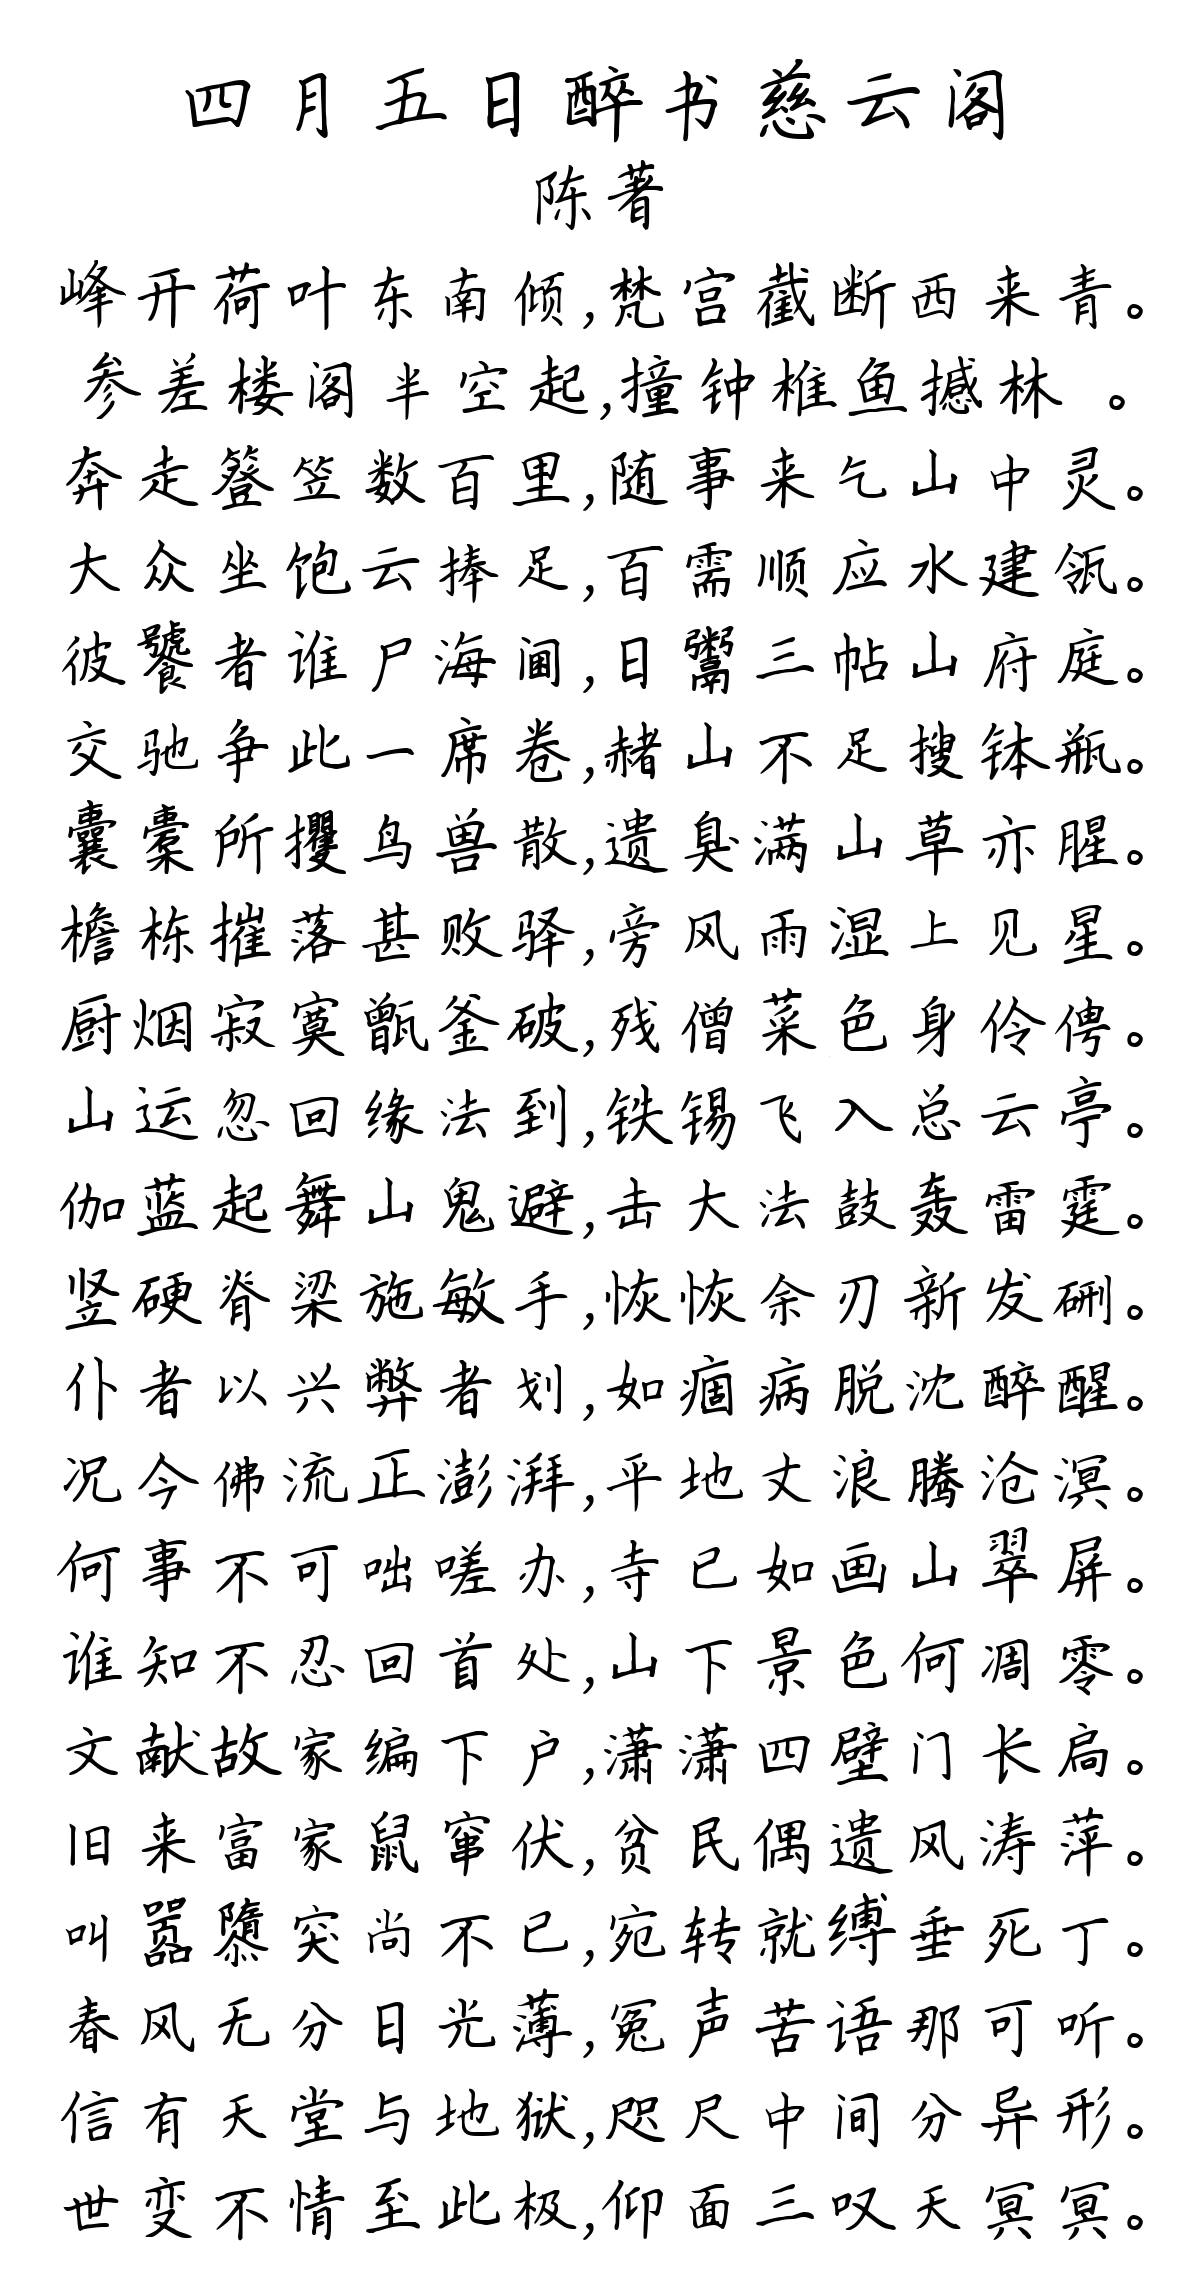 四月五日醉书慈云阁
陈著
峰开荷叶东南倾,梵宫截断西来青。
参差楼阁半空起,撞钟椎鱼撼林 。
奔走簦笠数百里,随事来乞山中灵。
大众坐饱云捧足,百需顺应水建瓴。
彼饕者谁尸海阃,日鬻三帖山府庭。
交驰争此一席卷,赭山不足搜钵瓶。
囊橐所攫鸟兽散,遗臭满山草亦腥。
檐栋摧落甚败驿,旁风雨湿上见星。
厨烟寂寞甑釜破,残僧菜色身伶俜。
山运忽回缘法到,铁锡飞入总云亭。
伽蓝起舞山鬼避,击大法鼓轰雷霆。
竖硬脊梁施敏手,恢恢余刃新发硎。
仆者以兴弊者划,如痼病脱沈醉醒。
况今佛流正澎湃,平地丈浪腾沧溟。
何事不可咄嗟办,寺已如画山翠屏。
谁知不忍回首处,山下景色何凋零。
文献故家编下户,潇潇四壁门长扃。
旧来富家鼠窜伏,贫民偶遗风涛萍。
叫嚣隳突尚不已,宛转就缚垂死丁。
春风无分日光薄,冤声苦语那可听。
信有天堂与地狱,咫尺中间分异形。
世变不情至此极,仰面三叹天冥冥。